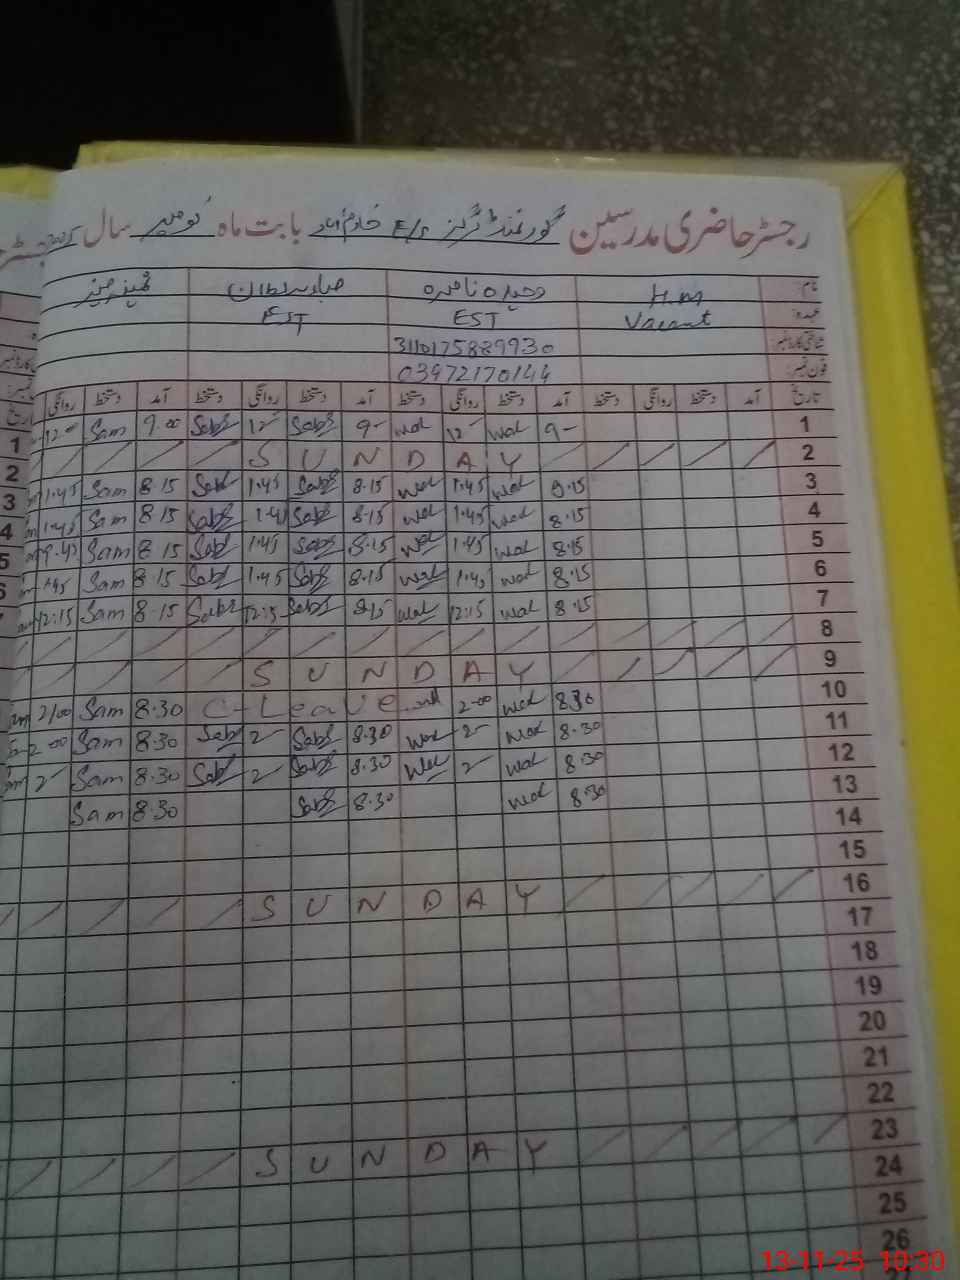 رجسٹر حاضری مدرسین گورنمنٹ گرلز E/S خادم آباد بابت ماہ نومبر سال
نام: H.M وحیدہ ناصرہ سلطان
عہدہ: Vacant EST EST
شناختی کارڈ نمبر: 3110175889930
فون نمبر: 03472170144
تاریخ آمد دستخط روانگی دستخط آمد دستخط روانگی دستخط آمد دستخط روانگی دستخط آمد دستخط روانگی
1 9- wal 12- wal 9- Sabs 12- Sabs 9.00 Sam 12.00
2 S U N D A Y
3 9.15 wal 1.45 wal 8.15 Sabs 1.45 Sabs 8.15 Sam 1.45
4 8.15 wal 1.45 wal 8.15 Sabs 1.4 Sabs 8.15 Sam 1.45
5 8.15 wal 1.45 wal 8.15 Sabs 1.45 Sabs 8.15 Sam
6 8.15 wal 1.45 wal 8.15 Sabs 1.45 Sabs 8.15 Sam
7 8.15 wal 12:15 wal 8.15 Sabs 12:15 Sabs 8.15 Sam 12:15
8
9 S U N D A Y
10 8.30 wal 2.00 C-Leave 8.30 Sam 2/00
11 8.30 wal 2- wal 8.30 Sabs 2- Sabs 8.30 Sam 2.00
12 8.30 wal 2- wal 8.30 Sabs 2- Sabs 8.30 Sam 2-
13 8.30 wal 8.30 Sabs 8.30 Sam
14
15
16 S U N D A Y
17
18
19
20
21
22
23 S U N D A Y
24
25
26
13-11-25 10:30